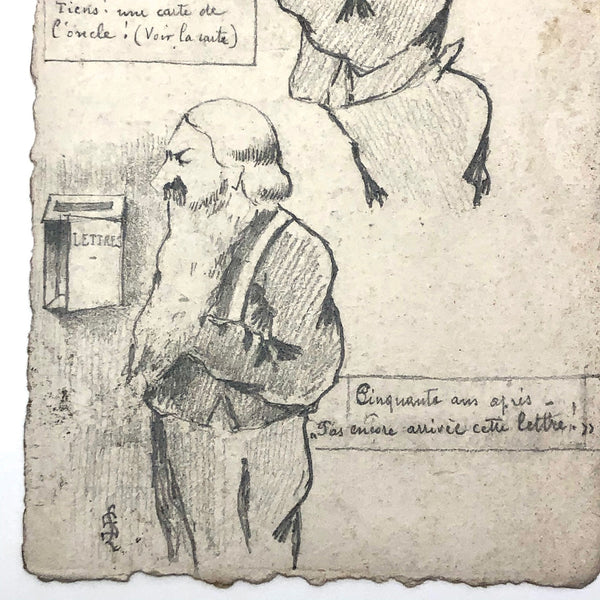 Tiens: une carte de
l'oncle! (Voir la carte)
LETTRES
Cinquante ans après –
„Pas encore arrivée cette lettre! »